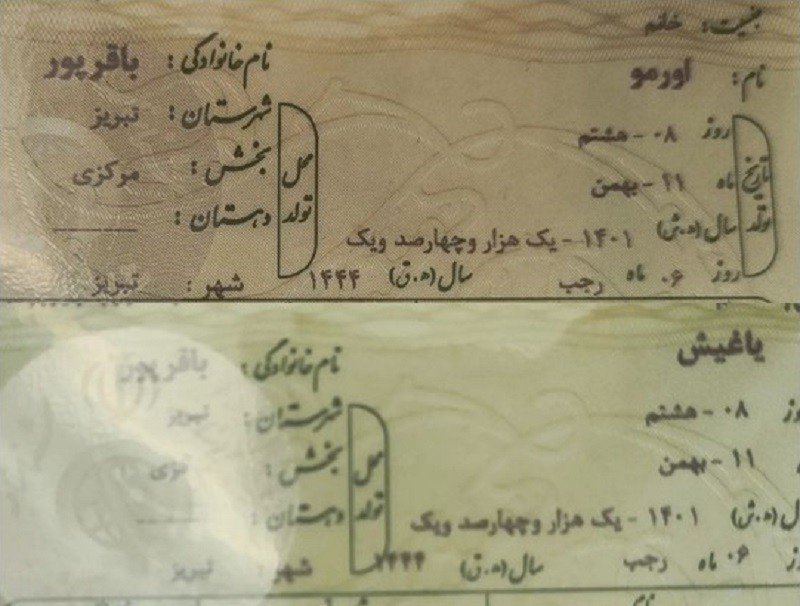 جنسیت: خانم
نام: اورمو نام خانوادگی: باقرپور
تاریخ تولد
روز ۰۸ - هشتم
ماه ۱۱ - بهمن
سال (ه.ش) ۱۴۰۱ - یک هزار وچهارصد ویک
روز ۰۶ ماه رجب سال (ه.ق) ۱۴۴۴
محل تولد
شهرستان: تبریز
بخش: مرکزی
دهستان:
شهر: تبریز
یاغیش نام خانوادگی: باقرپور
روز ۰۸ - هشتم
۱۱ - بهمن
سال (ه.ش) ۱۴۰۱ - یک هزار وچهارصد ویک
روز ۰۶ ماه رجب سال (ه.ق) ۱۴۴۴
محل تولد
شهرستان: تبریز
بخش:
دهستان:
شهر: تبریز